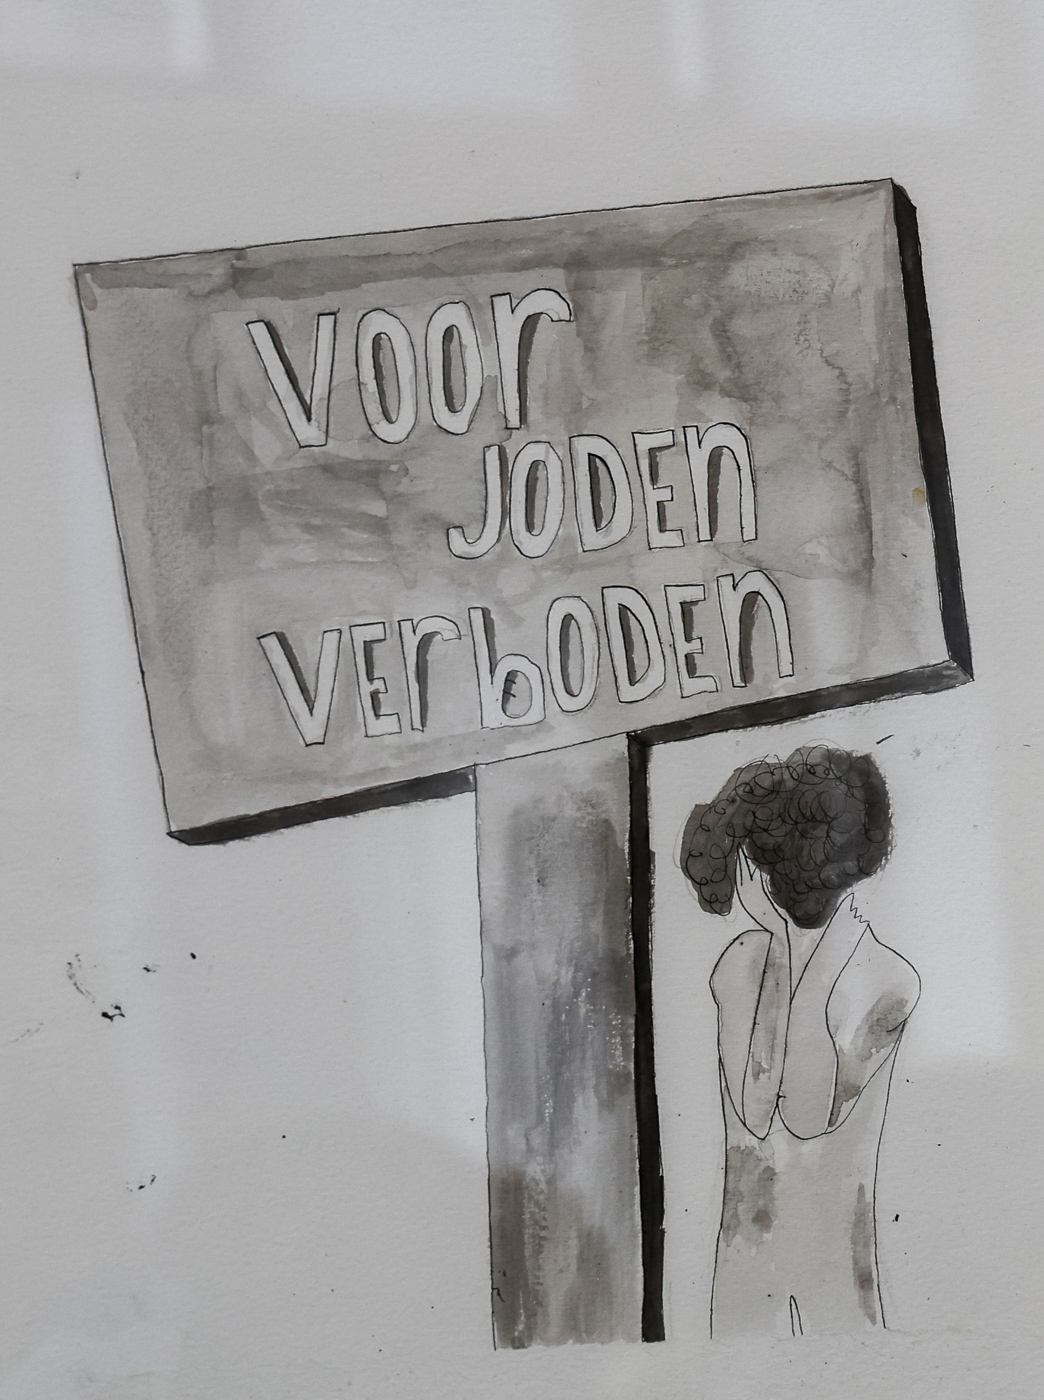 Voor
JODEN
VERBODEN